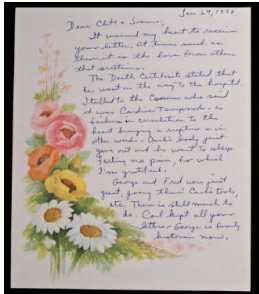 Jan 29, 1978
Dear Cliff &
It warmed my heart to receive
your letter. At times such as
this it is the love from others
that sustains.
The Death Certificate stated that
he went on the way to the hospital.
I talked to the Coroner who said
it was Cardiac Tamponade, a
failure in circulation to the
heart buying a rupture or in
other words - Carl's body just
gave out and he went to sleep
feeling no pain, for which
I'm gratified.
George and Fred were just
great, going thru Carl's tools,
etc. There is still much to
do. Carl kept all your
letters. George is family
historian now.